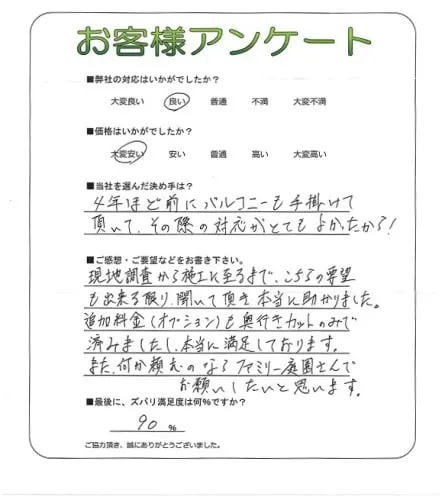 お客様アンケート
■弊社の対応はいかがでしたか?
大変良い 良い 普通 不満 大変不満
■価格はいかがでしたか?
大変安い 安い 普通 高い 大変高い
■当社を選んだ決め手は?
4年ほど前にバルコニーも手掛けて
頂いて、その際の対応がとてもよかったから!
■ご感想・ご要望などをお書き下さい。
現地調査から施工に至るまで、こちらの要望
も出来る限り、聞いて頂き本当に助かりました。
追加料金(オプション)も奥行きカットのみで
済みましたし、本当に満足しております。
また、何か頼むのならファミリー庭園さんで
お願いしたいと思います。
■最後に、ズバリ満足度は何%ですか?
90 %
ご協力頂き、誠にありがとうございました。